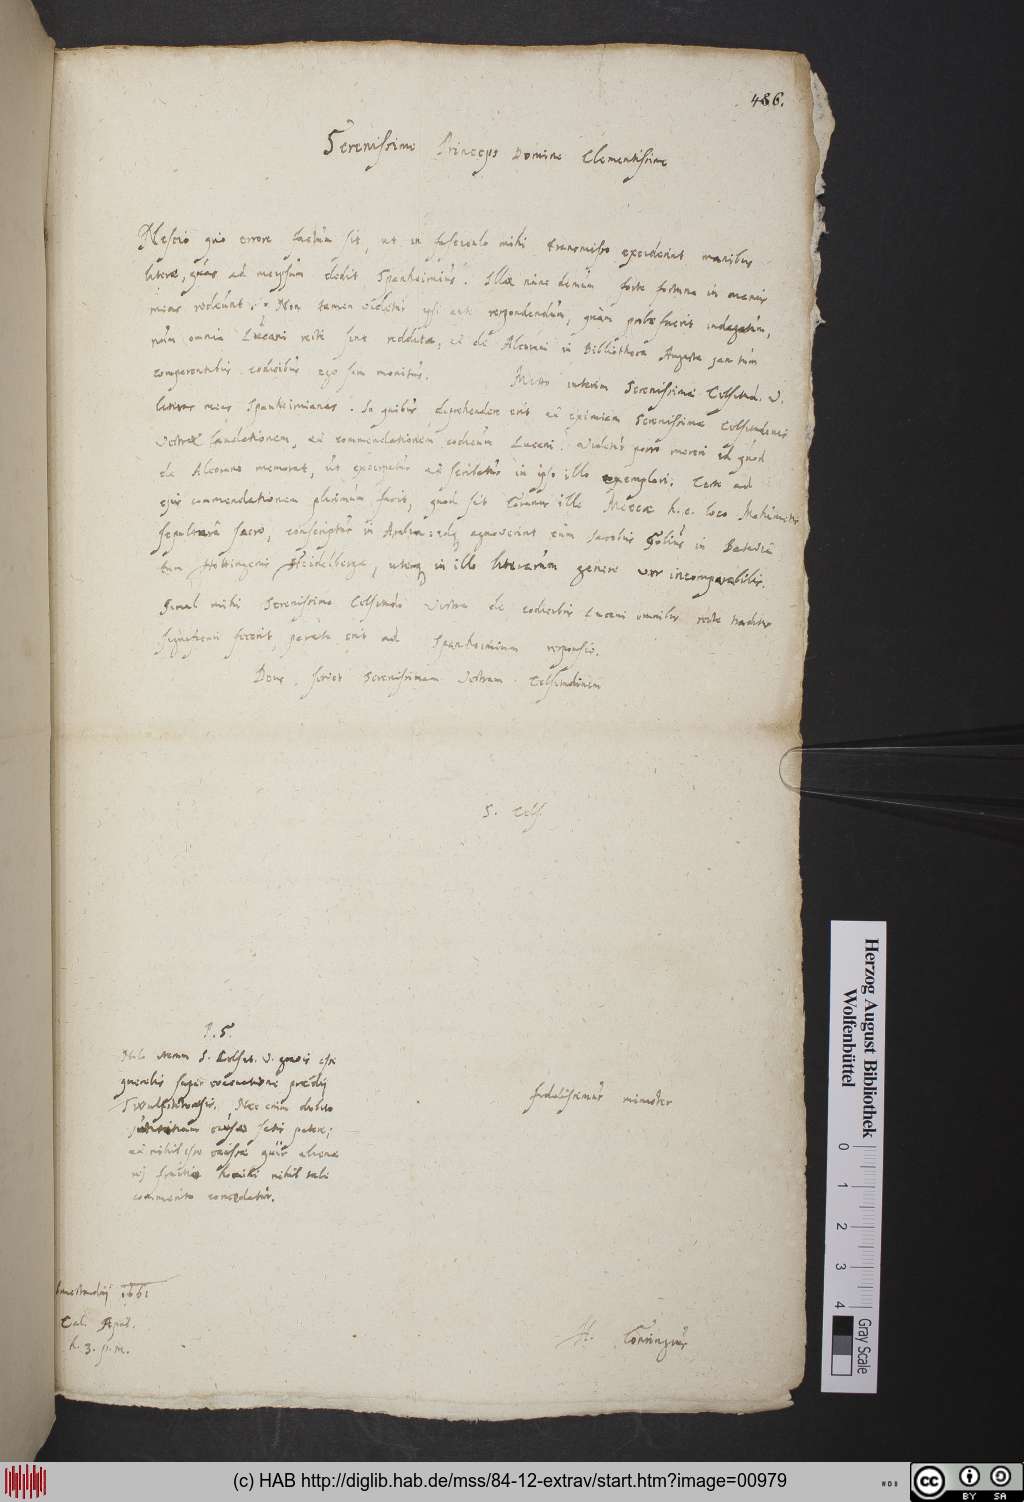 486.
Serenissime Princeps Domine Clementissime
Nescio quo errore factum sit, ut in fasciculo mihi transmisso exciderint manibus
literæ, quas ad meipsum dedit Spanheimius. Illæ nunc demum forte fortuna in manus
meas redeunt. Non tamen videtur ipsi ante respondendum, quam probe fuerit indagatum,
num omnia Lucani recte sint reddita, et de Alcorani in Bibliotheca Augusta jam tum
comparentibus codicibus ego sim monitus. Mitto interim Serenissimæ Celsitud. V.
literas meas Spanheimianas. In quibus deprehendere erit et eximiam Serenissimæ Celsitudinis
Vestræ laudationem, et commendationem codicum Lucani. Videtur porro mereri id quod
de Alcorano memorat, ut excerpatur et scribatur in ipso illo exemplari. Certe ad
ejus commendationem plurimum facit, quod sit Coranus ille Meccæ h. e. loco Mahumetis
sepultura sacro, conscriptus in Arabia: idq agnoverint cum Jacobus Golius in Batavia
tum Hottingerus Heidelbergæ, uterq in illo literarum genere vir incomparabilis.
Simul mihi Serenissima Celsitudo Vestra de codicibus Lucani omnibus recte traditis
significari fecerit, parata erit ad Spanheimium responsio.
Deus servet Serenissimam Vestram Celsitudinem
S. Cels.
P. S.
S. Celsit. V. gravis esse
querelis super
Nec enim dubito
causæ satis patere;
et nihil esse causæ quin
nihil tali
concedatur.
fidelissimus minister
1661
Cal. April.
h. 3. p. m.
H. Conringius
Herzog August Bibliothek
Wolfenbüttel
0 1 2 3 4
Gray Scale
(c) HAB http://diglib.hab.de/mss/84-12-extrav/start.htm?image=00979
cc BY SA